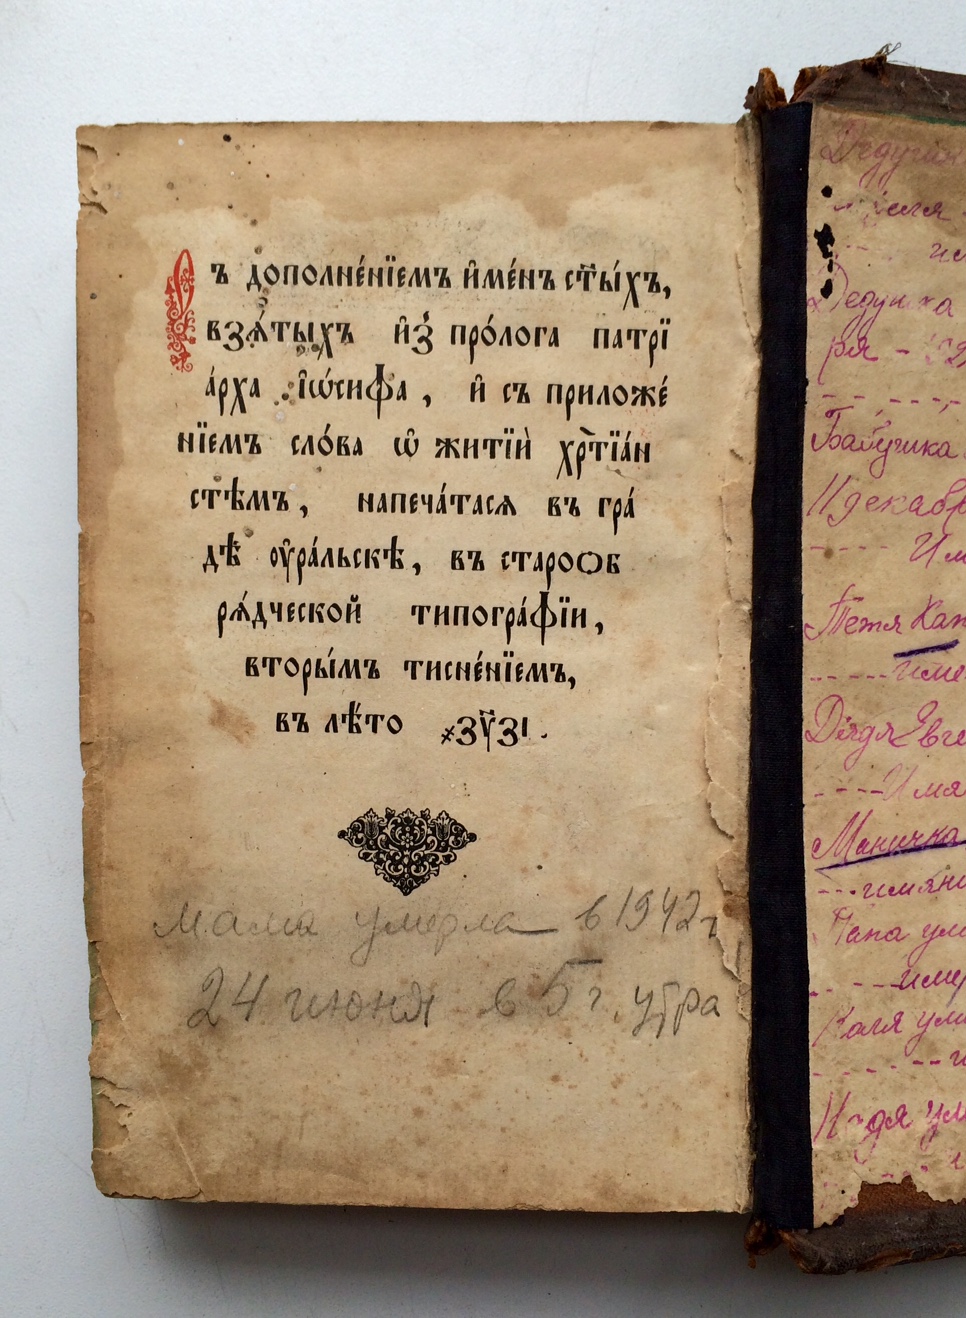 Съ дополне́нїемъ и҆ме́нъ ст҃ы́хъ,
взѧ́тыхъ и҆з̾ про́лога патрї
а́рха і҆ѡ́сифа, и҆ съ приложе́
нїемъ сло́ва ѡ҆ житїѝ хрⷭ҇тїа́н
стѣмъ, напеча́тасѧ въ гра́
дѣ ᲂу҆ра́льскѣ, въ староѻб
рѧ́дческой типогра́фїи,
вторы́мъ тисне́нїемъ,
въ лѣ́то ҂зу҃зі.
мама умерла в 1942 г
24 июня в 5 г. утра
Дедушк
Дедушка
ря -
Бабушка
11 декабр
Им
Петя Кап
име
Дядя Евге
Имя
Маничка
имяни
Папа ум
имя
Коля ум
Надя ум